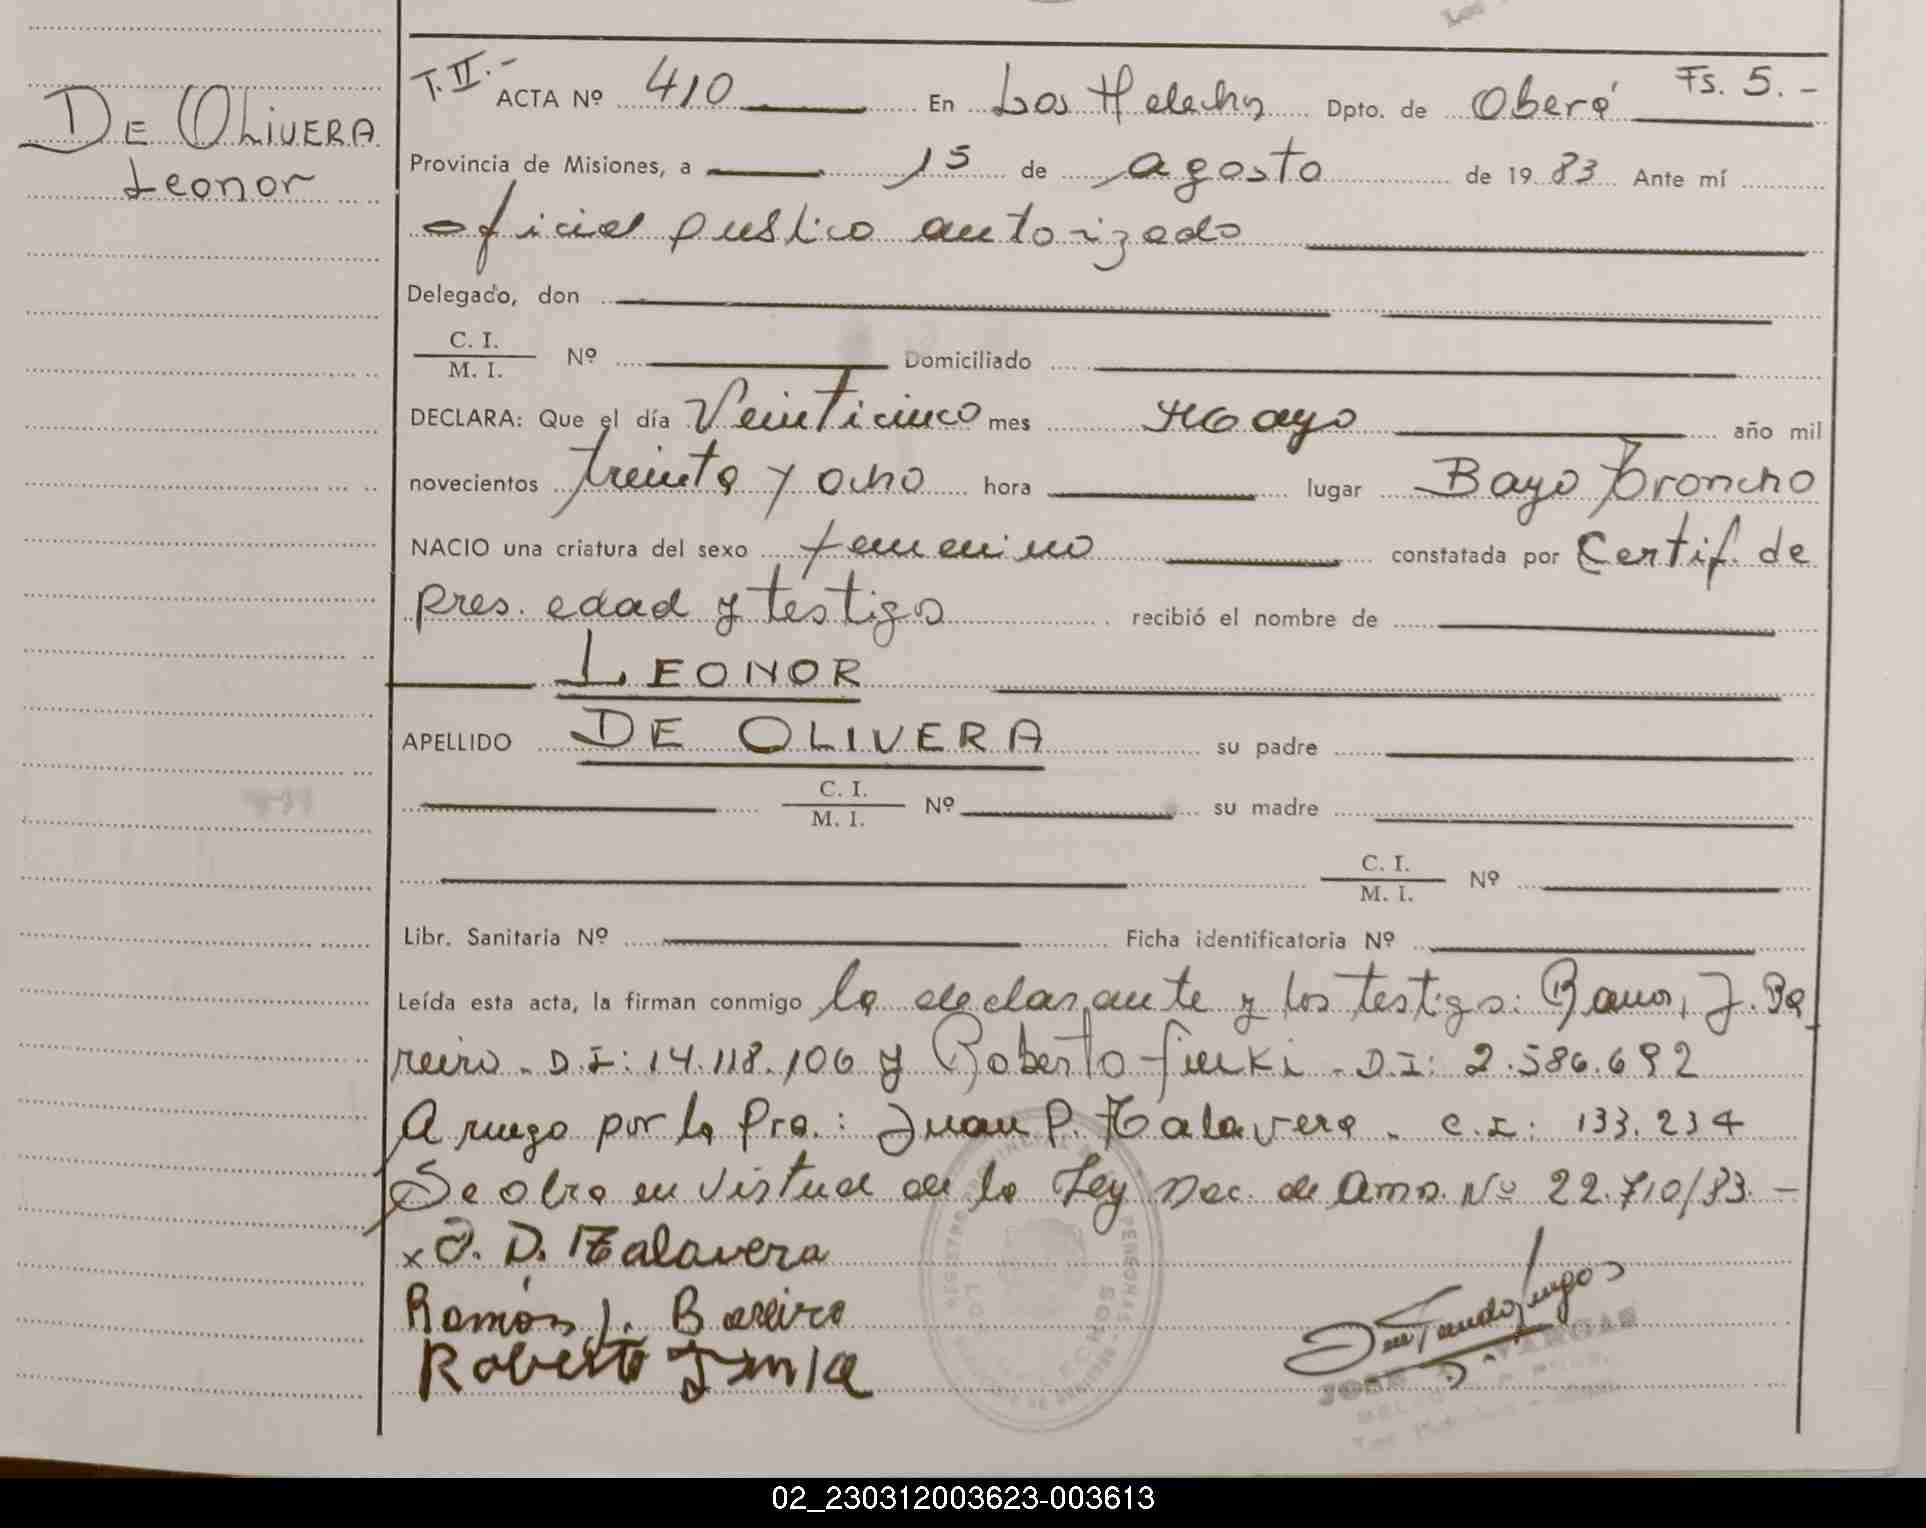 DE OLIVERA
Leonor
T. II.- ACTA Nº 410 En Los Helechos Dpto. de Oberá Fs. 5.-
Provincia de Misiones, a 15 de agosto de 1983 Ante mí
oficial publico autorizado
Delegado, don
C. I.
M. I. Nº Domiciliado
DECLARA: Que el día Veinticinco mes Mayo año mil
novecientos treinta y ocho hora lugar Bayo Troncho
NACIO una criatura del sexo femenino constatada por Certif. de
pres. edad y testigo recibió el nombre de
LEONOR
APELLIDO DE OLIVERA su padre
C. I.
M. I. Nº su madre
C. I.
M. I. Nº
Libr. Sanitaria Nº Ficha identificatoria Nº
Leída esta acta, la firman conmigo la declarante y los testigo: Ramon J. Ba
reiro. D.I: 14.118.106 y Roberto D.I: 2.586.692
A ruego por la Pra.: Juan P. Talavera. C.I: 133.234
Se obra en virtud de la Ley Nac. de Amn. Nº 22.710/83.-
x J. D. Talavera
Ramón J. Bareiro
Roberto
JOSE VARGAS
02_230312003623-003613